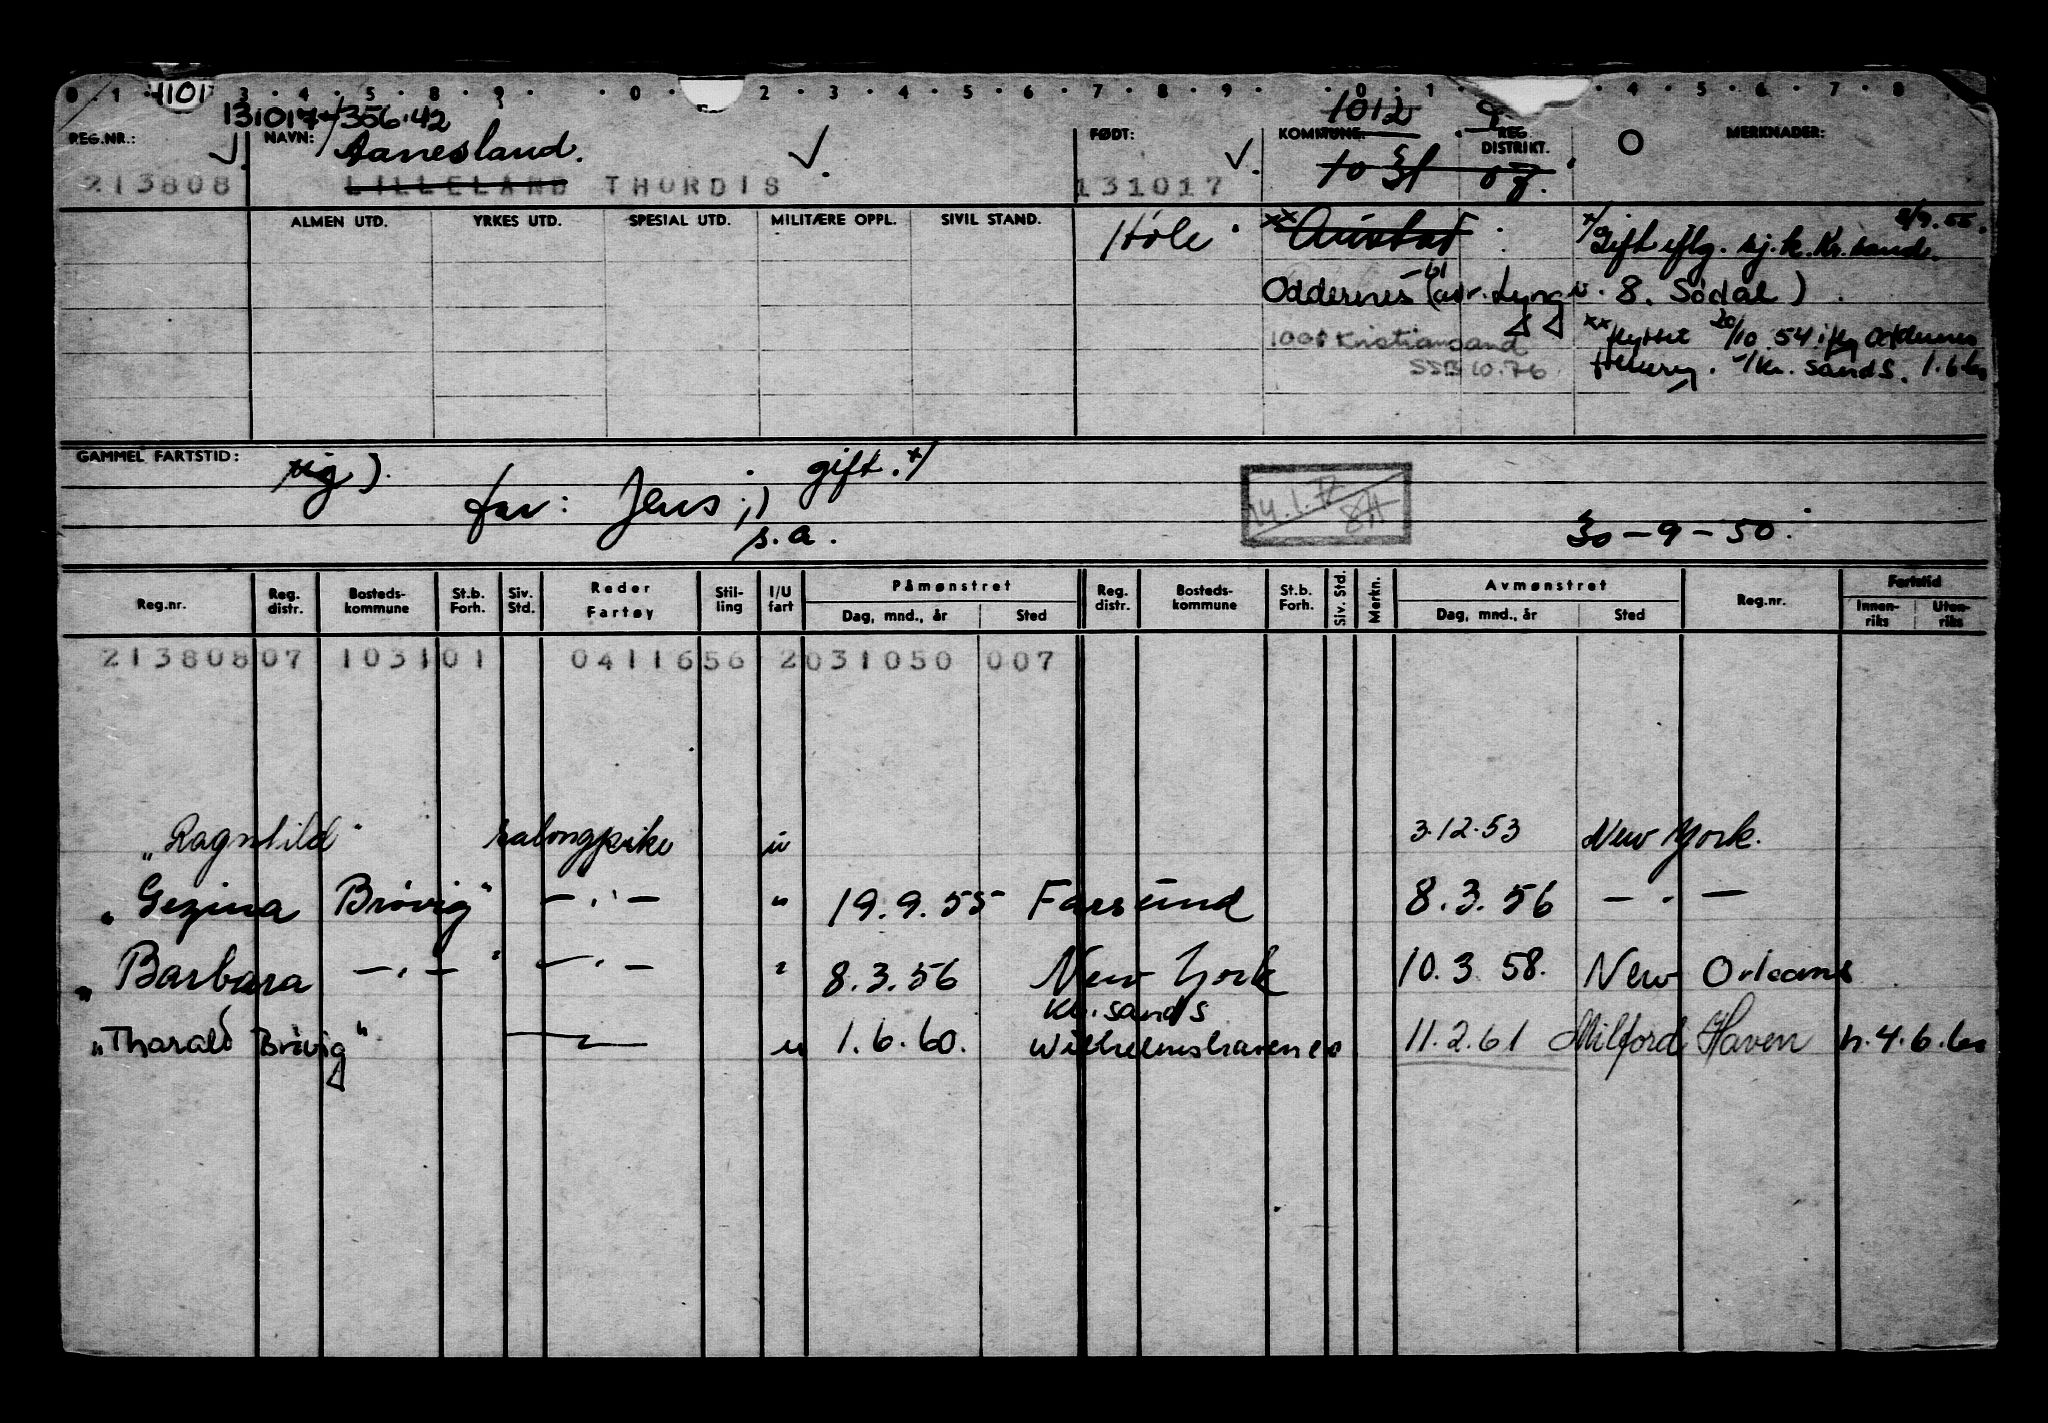 0 . 1 . 1101 3 . 4 . 5 . 8 . 9 . . 0 . 2 . 3 . 4 . 5 . 6 . 7 . 8 . 9 . . 0 . 1 . 4 . 5 . 6 . 7 . 8
131017 356.42
1012 9
REG.NR.: NAVN: Aanesland. FØDT: KOMMUNE: REG. DISTRIKT. O MERKNADER:
213808 LILLELAND THORDIS . 131017 1031 07.
ALMEN UTD. YRKES UTD. SPESIAL UTD. MILITÆRE OPPL. SIVIL STAND. Hole xx Austad x/ Gift iflg. sj.k. Kr.sand. 8/9.55.
-61
Oddernes (adr. Lyngv. 8. Sødal)
1001 Kristiansand xx flyttet 20/10 54 iflg Oddernes
SSB 10.76 f.treg. /Kr. sand S. 1.6.60
GAMMEL FARTSTID: gift. x/
far: Jens ;)
s.a.
30-9-50.
Reg.nr. Reg. distr. Bosteds-kommune St.b. Forh. Siv. Std. Reder Fartøy Stil-ling I/U fart Påmønstret Dag, mnd., år Sted Reg. distr. Bosteds-kommune St.b. Forh. Siv. Std. Merkn. Avmønstret Dag, mnd., år Sted Reg.nr. Fartstid Innen-riks Uten-riks
213808 07 1031 01 0411656 2 031050 007
„Ragnhild" salongpike u 3.12.53 New York.
„Gezina Brøvig" — . — " 19.9.55 Farsund 8.3.56 — . —
„Barbara — . — " — . — " 8.3.56 New York 10.3 58. New Orleans
Kr. sand S
„Tharald Brøvig" u 1.6.60. Wilhelmshaven 11.2.61 Milford Haven h.4.6.60